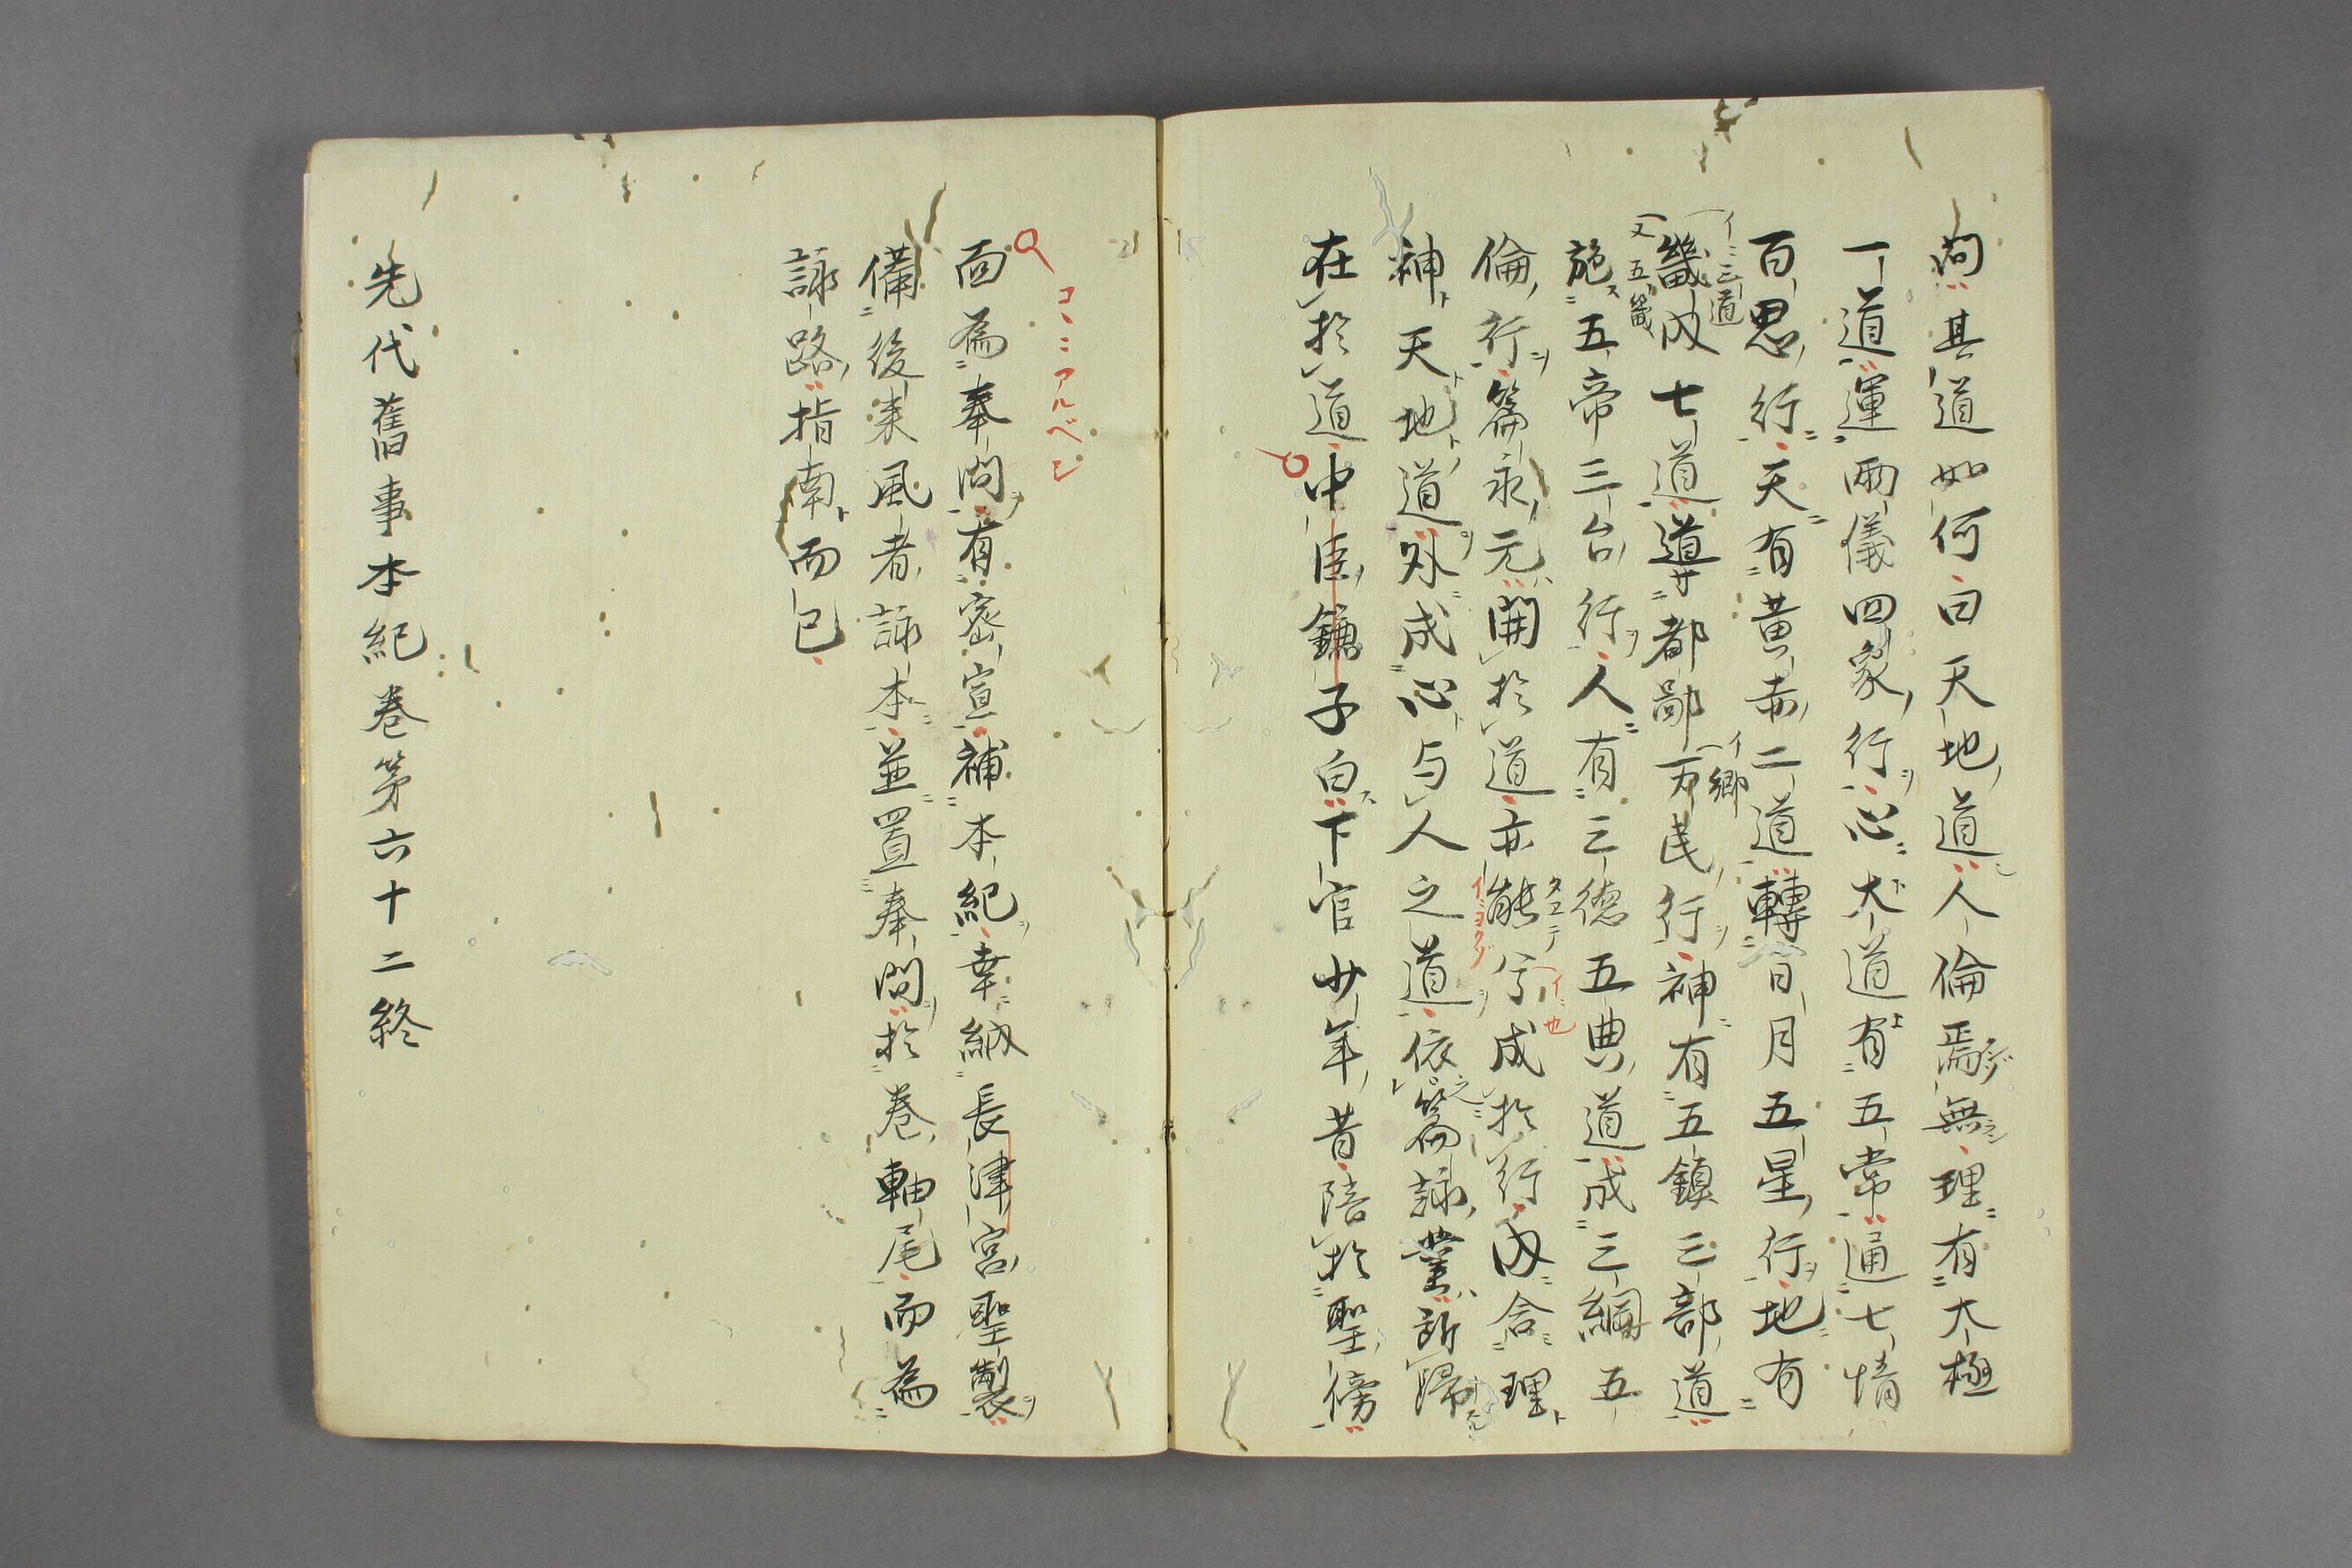 問其道如何白天地道人倫焉無理有大極
一道運兩儀四象行心大道有五常通七情
百思行天有黄赤二道轉日月五星行地有
畿内七道導都鄙万民行神有五鎮三部道
施五帝三台行人有三徳五典道成三綱五
倫行篇永元開於道亦能㐧成於行内合理
神天地道外成心与人之道依篇詠業所歸
在於道中臣鎌子白下官少年昔陪於聖傍
コヽニアルベシ
面為奉問有密宣補本紀幸納長津宮聖製
備後来風者詠本並置奉問於巻軸尾而為
詠路指南而已
先代舊事本紀巻第六十二終